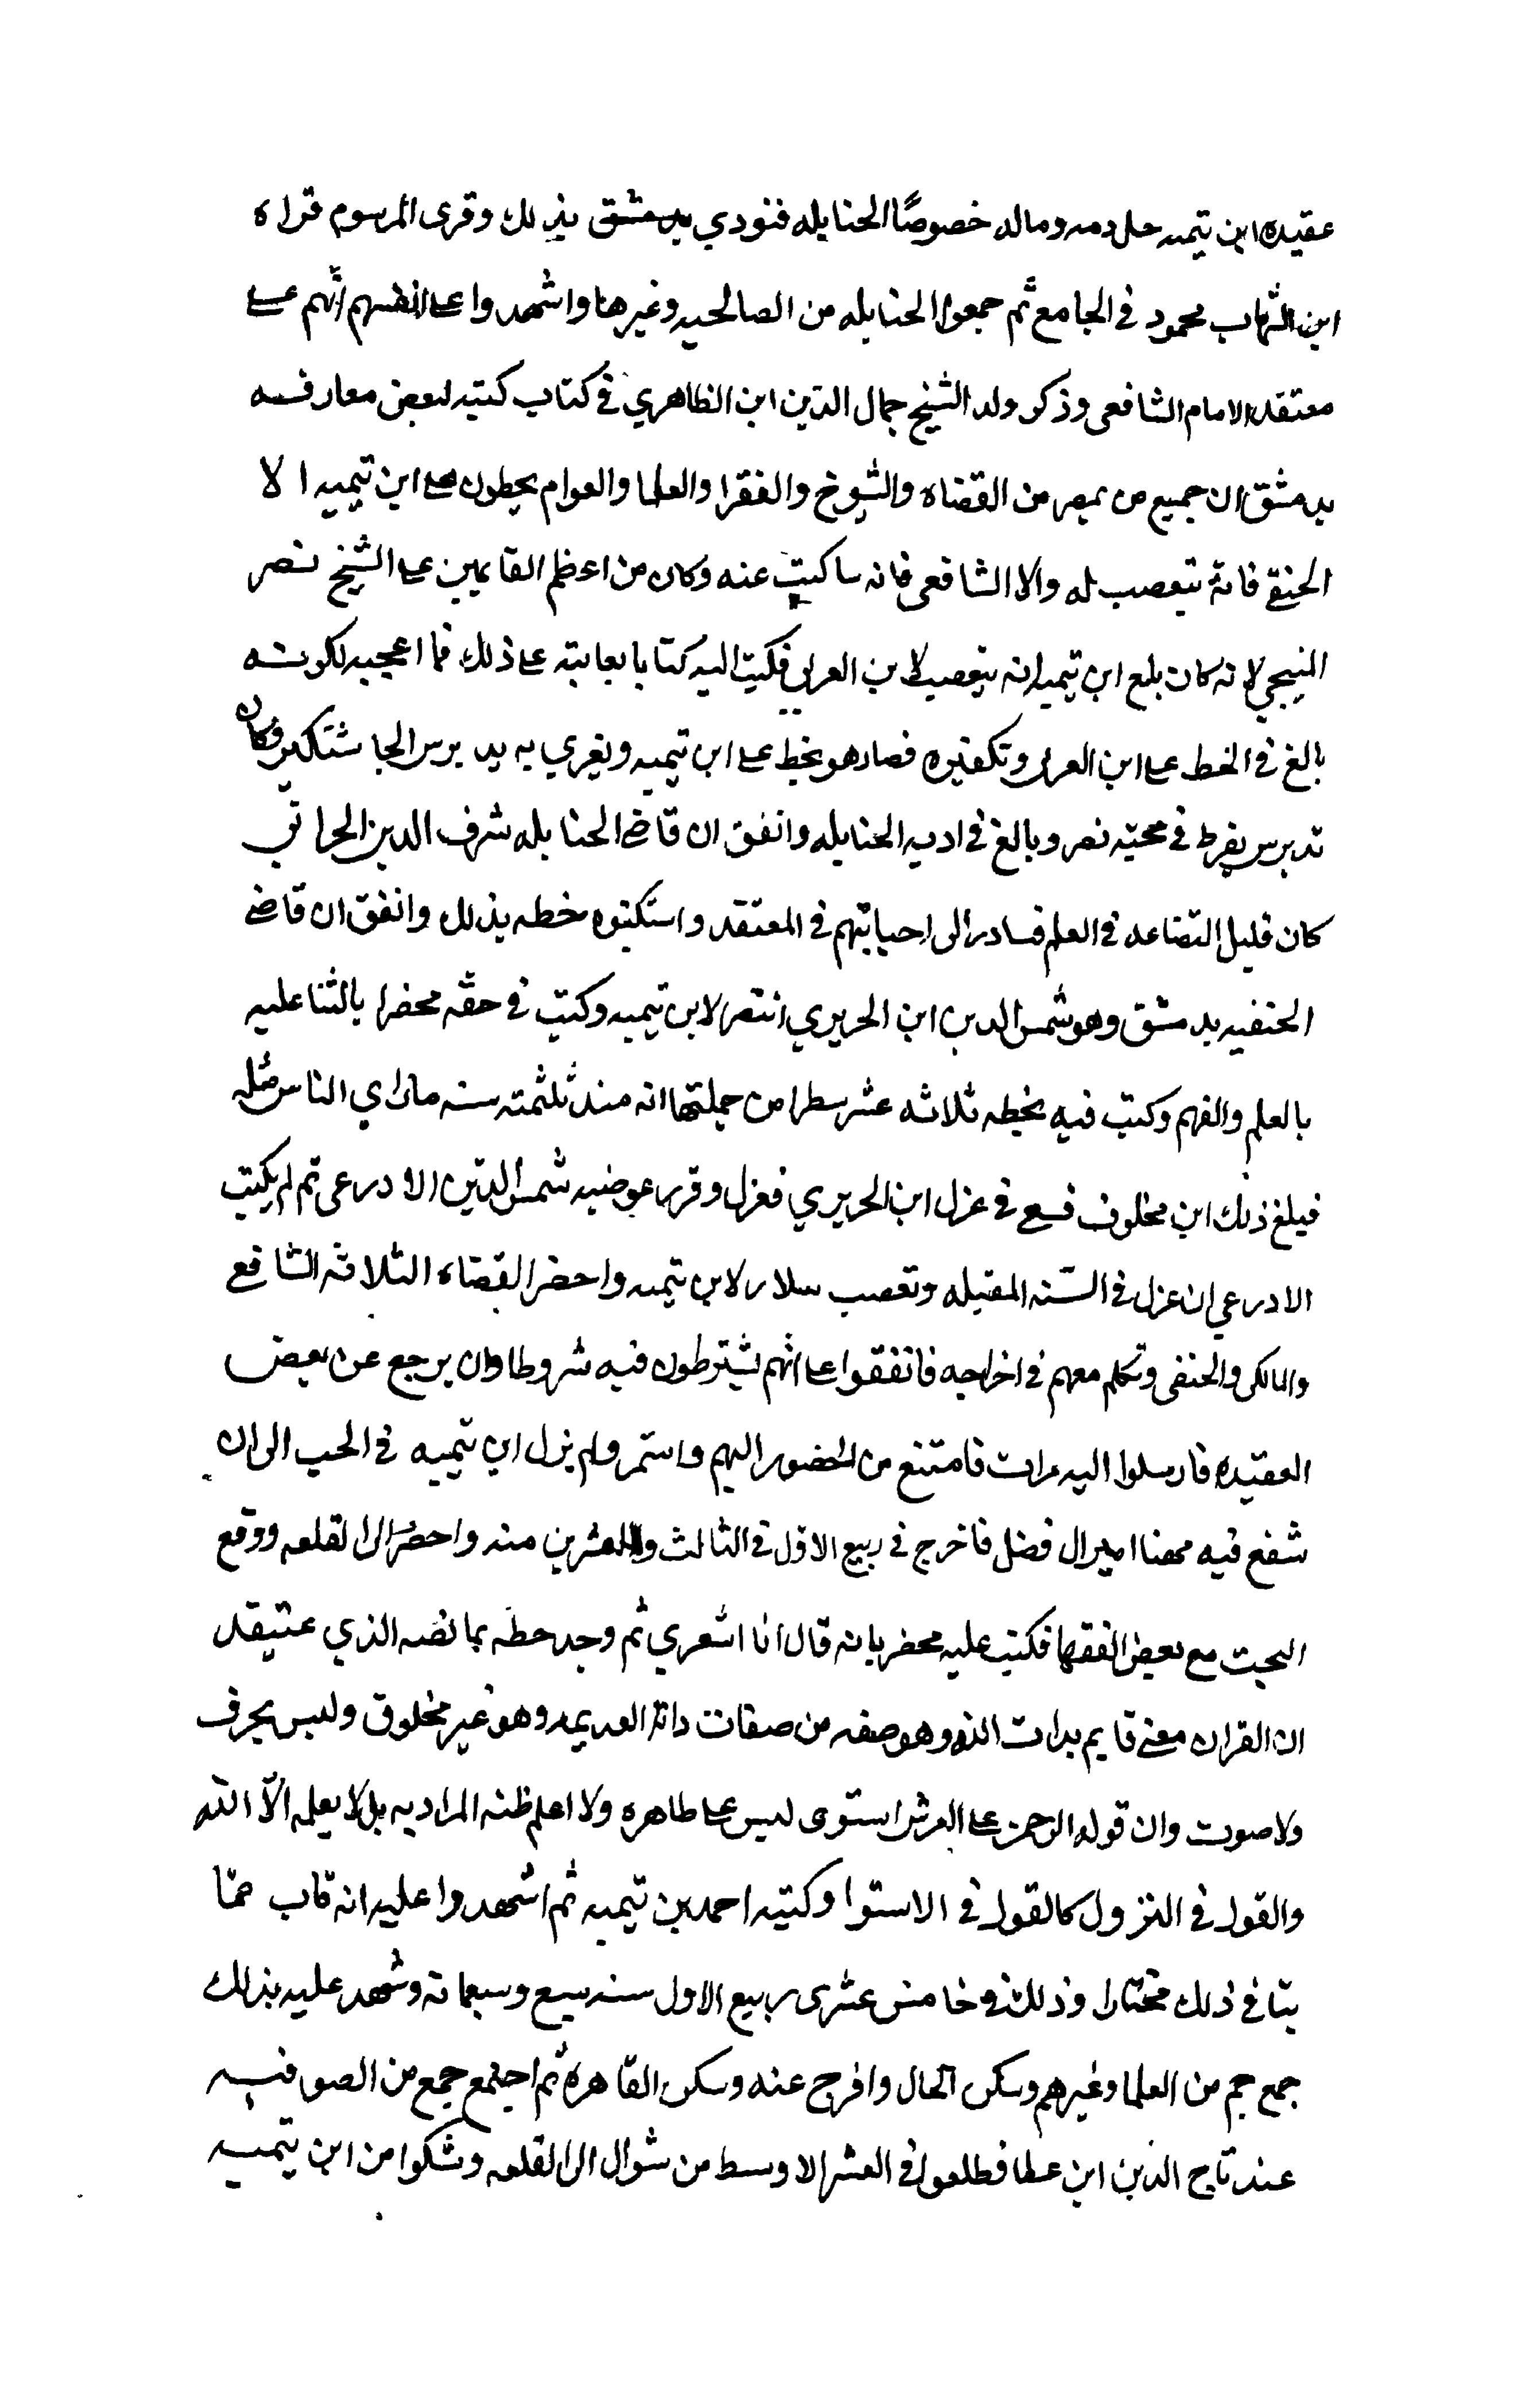 عقيده ابن تيميه حل دمه وماله خصوصًا الحنابله فنودي بدمشق بذلك وقرى المرسوم قراه
ابن الشهاب محمود في الجامع ثم جمعوا الحنابله من الصالحيه وغيرها واشهدوا على انفسهم انهم على
معتقد الامام الشافعى وذكر ولد الشيخ جمال الدين ابن الظاهري في كتاب كتبه لبعض معارفه
بدمشق ان جميع من بمصر من القضاه والشيوخ والفقرا والعلما والعوام يحطون على ابن تيميه الا
الحنفي فانه يتعصب له والا الشافعى فانه ساكت عنه وكان من اعظم القايمين على الشيخ نصر
المنبجي لانه كان بلغ ابن تيميه انه يتعصب لابن العربي فكتب اليه كتابا يعاتبه على ذلك فما اعجبه لكونه
بالغ في الحط على ابن العربى وتكفيره فصار هو يحط على ابن تيميه ويغري به بيبرس الجاشنكير وكان
بيبرس يفرط في محبته نصر وبالغ في اذيه الحنابله واتفق ان قاضي الحنابله شرف الدين الحراني
كان قليل البضاعه في العلم فبادر الى اجابتهم في المعتقد واستكتبوه خطه بذلك واتفق ان قاضي
الحنفيه بدمشق وهو شمس الدين ابن الحريري انتصر لابن تيميه وكتب في حقه محضرا بالثنا عليه
بالعلم والفهم وكتب فيه بخطه ثلاثه عشر سطرا من جملتها انه منذ ثلثمئه سنه ما راي الناس مثله
فبلغ ذلك ابن مخلوف فسعى في عزل ابن الحريري فعزل وقرر عوضه شمس الدين الادرعى ثم لم يلبث
الادرعي ان عزل في السنه المقبله وتعصب سلار لابن تيميه واحضر القضاه الثلاثه الشافعي
والمالكى والحنفى وتكلم معهم في اخراجه فاتفقوا على انهم يشترطون فيه شروطا وان يرجع عن بعض
العقيده فارسلوا اليه مرات فامتنع من الحضور اليهم واستمر ولم يزل ابن تيميه في الجب الى ان
شفع فيه مهنا امير ال فضل فاخرج في ربيع الاول في الثالث والعشرين منه واحضر الى القلعه ووقع
البحث مع بعض الفقها فكتب عليه محضر بانه قال انا اشعري ثم وجد خطه بما نصه الذي عتيقد
ان القران معنى قايم بذات الله وهو صفه من صفات ذاته القديمه وهو غير مخلوق وليس بحرف
ولا صوت وان قوله الرحمن على العرش استوى ليس على ظاهره ولا اعلم كنه المراد به بل لا يعلمه الا الله
والقول في النزول كالقول في الاستوا وكتبه احمد بن تيميه ثم اشهدوا عليه انه تاب مما
ينافي ذلك مختارا وذلك في خامس عشرى ربيع الاول سنه سبع وسبعمائه وشهد عليه بذلك
جمع جم من العلما وغيرهم وسكن الحال وافرج عنه وسكن القاهره ثم اجتمع جمع من الصوفيه
عند تاج الدين ابن عطا فطلعوا في العشر الاوسط من شوال الى القلعه وشكوا من ابن تيميه